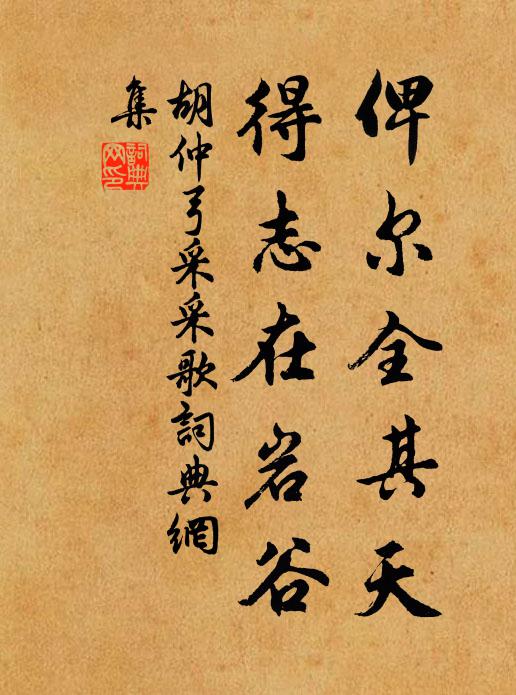 俾尔全其天
得志在岩谷
胡仲弓采采歌詞典網
集
詞典網印